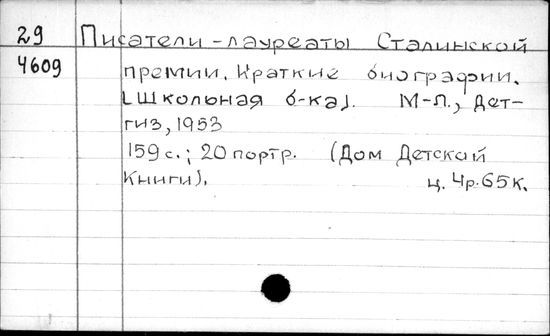 29 Писатели-лауреаты Сталинской
4609 премии. Краткие биографии.
[Школьная б-ка]. М-Л., Дет-
гиз, 1953
159 с.; 20 портр. (Дом Детской
Книги). ц. 4р.65к.